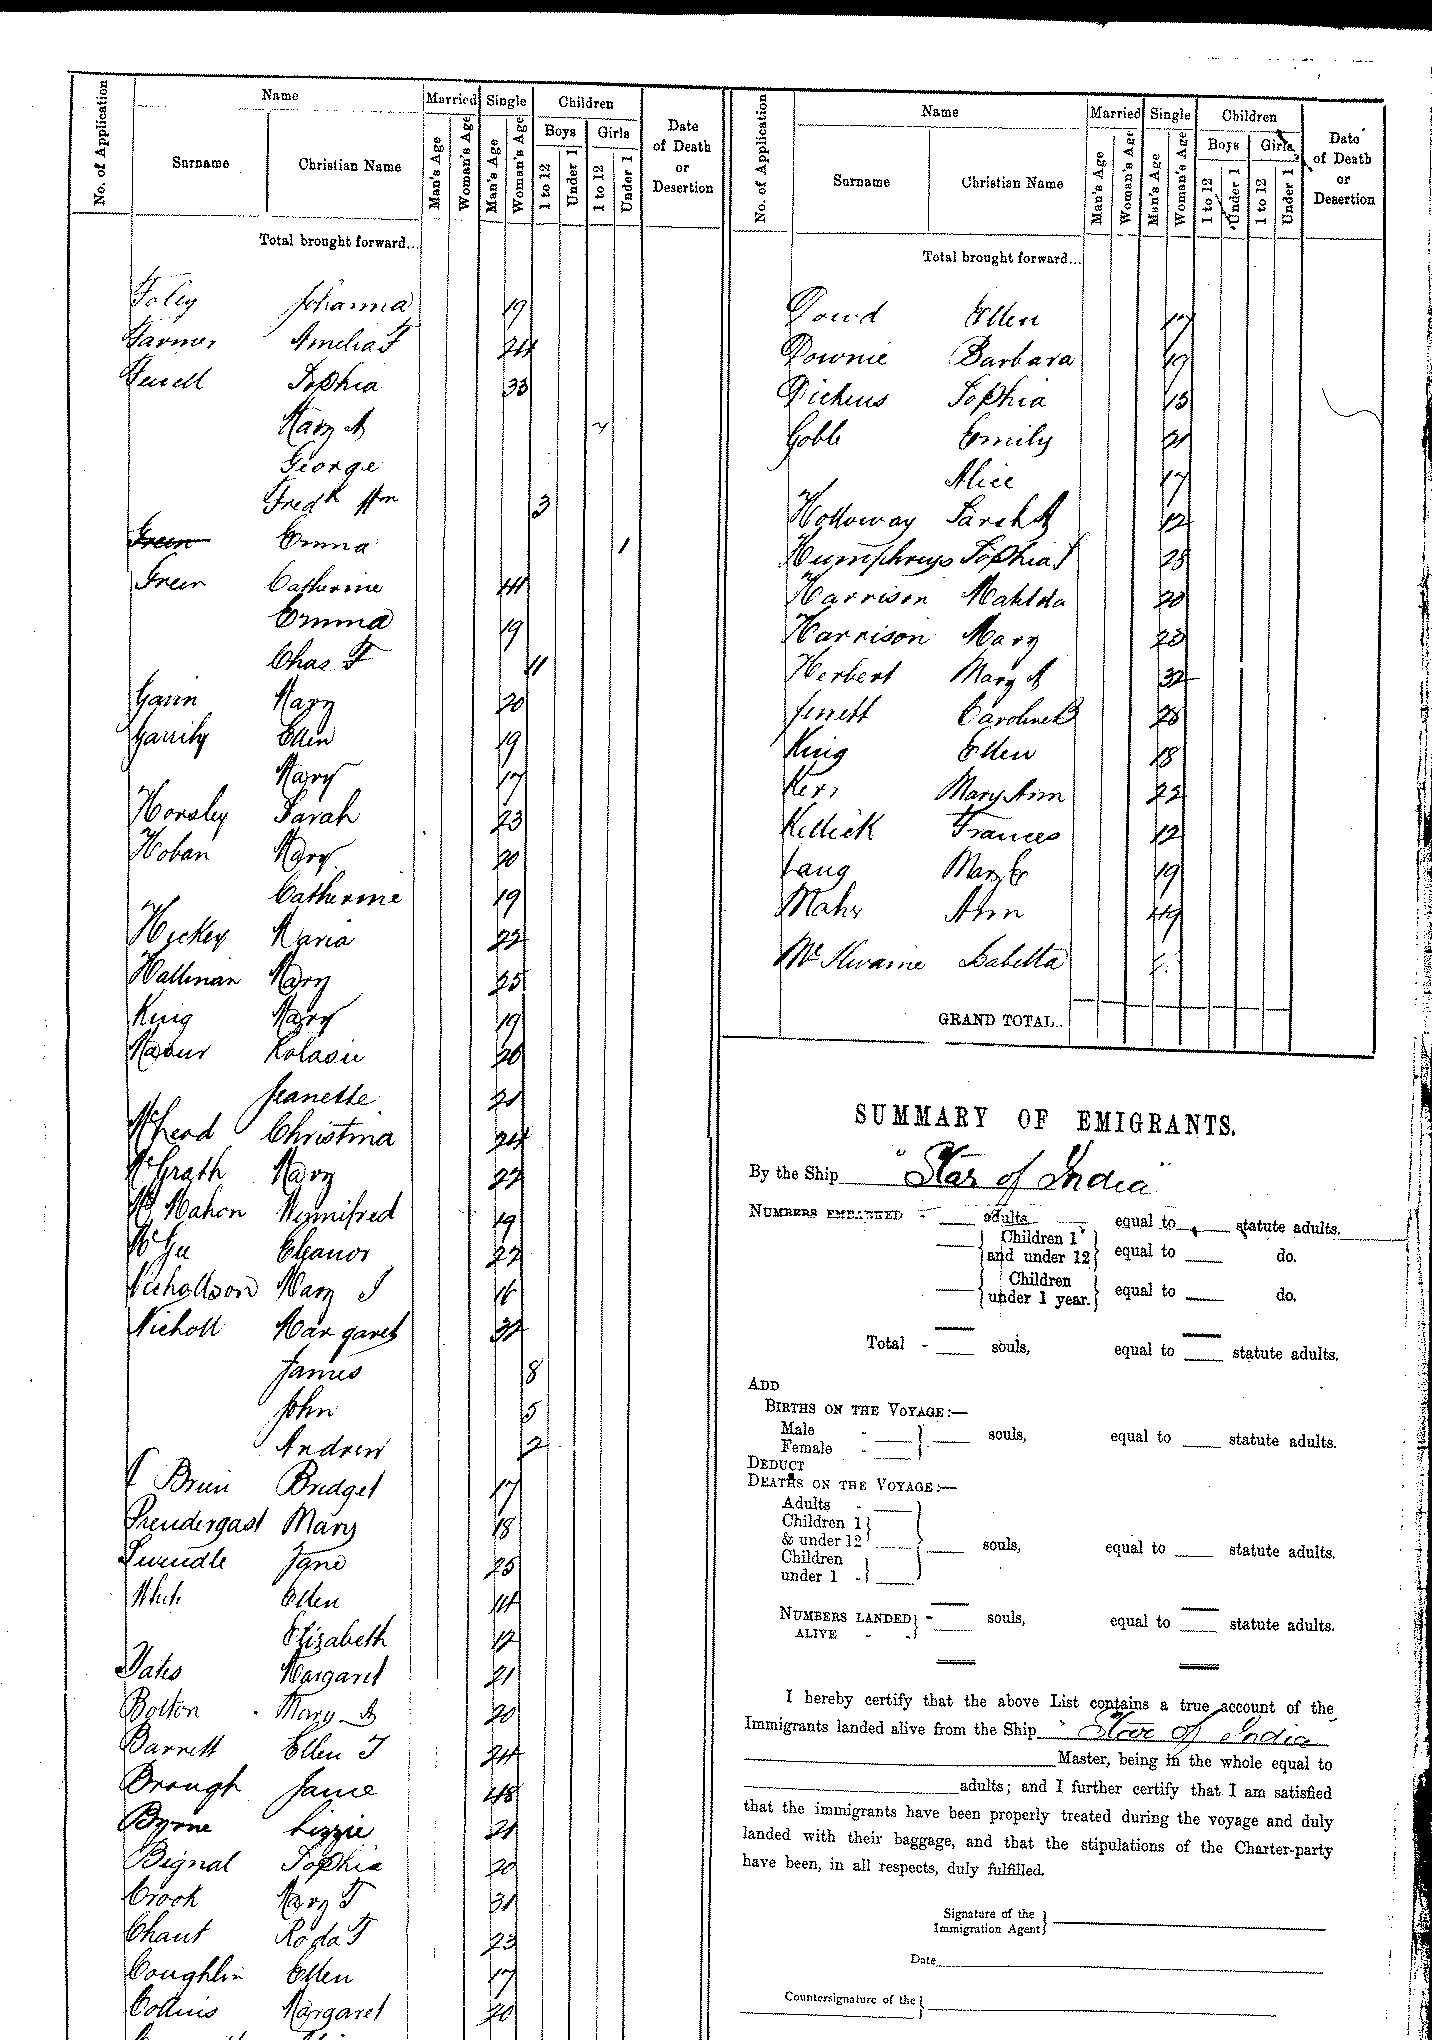 No. of Application
Name
Surname
Christian Name
Married
Man's Age
Woman's Age
Single
Man's Age
Woman's Age
Children
Boys
1 to 12
Under 1
Girls
1 to 12
Under 1
Date
of Death
or
Desertion
Total brought forward...
Foley Johanna 19
Farmer Amelia F 24
Sophia 33
Mary A
George
Fredk Hm 3
Green Emma 1
Green Catherine 44
Emma 19
Chas. F 11
Gavin Mary 20
Garrity Ellen 19
Mary 17
Horsley Sarah 23
Hoban Mary 20
Catherine 19
Hickey Maria 22
Hallinan Mary 25
King Mary 19
26
Jeanette 21
Christina 24
McGrath Mary 22
Mc Mahon Winnifred 19
McGee Eleanor 22
Nichollson Mary J 16
Nicholl Margaret 32
James 8
John 5
Andrew 2
Brien Bridget 17
Prendergast Mary 18
Swindle Jane 25
White Ellen 14
Elizabeth 12
Yates Margaret 21
Bolton Mary A 20
Barrett Ellen T 24
Brough Jane 48
Byrne Lizzie 21
Bignal Sophia 20
Crook Mary F 31
Chant Roda F 23
Coughlin Ellen 17
Collins Margaret 20
No. of Application
Name
Surname
Christian Name
Married
Man's Age
Woman's Age
Single
Man's Age
Woman's Age
Children
Boys
1 to 12
Under 1
Girls
1 to 12
Under 1
Date
of Death
or
Desertion
Total brought forward...
Dowd Ellen 17
Downie Barbara 19
Dickens Sophia 15
Goble Emily 21
Alice 17
Holloway Sarah A 12
Humphreys Sophia J 28
Harrison Matilda 20
Harrison Mary 23
Herbert Mary A 32
Jerrett Caroline B 28
King Ellen 18
Kerr Mary Ann 22
Killick Frances 12
Lang Mary E 19
Maher Ann 49
Isabella
GRAND TOTAL..
SUMMARY OF EMIGRANTS.
By the Ship "Star of India"
NUMBERS EMBARKED - adults equal to statute adults.
Children 1
and under 12 equal to do.
Children
under 1 year. equal to do.
Total - souls, equal to statute adults.
ADD
BIRTHS ON THE VOYAGE:—
Male -
Female - souls, equal to statute adults.
DEDUCT
DEATHS ON THE VOYAGE:—
Adults -
Children 1
& under 12
Children
under 1 - souls, equal to statute adults.
NUMBERS LANDED - souls, equal to statute adults.
ALIVE - -
I hereby certify that the above List contains a true account of the
Immigrants landed alive from the Ship "Star of India
Master, being in the whole equal to
adults; and I further certify that I am satisfied
that the immigrants have been properly treated during the voyage and duly
landed with their baggage, and that the stipulations of the Charter-party
have been, in all respects, duly fulfilled.
Signature of the
Immigration Agent
Date
Countersignature of the